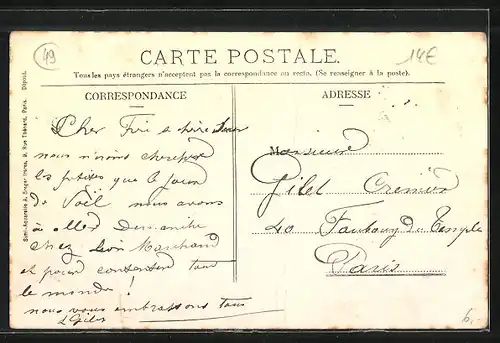 49
14€
CARTE POSTALE.
Tous les pays étrangers n'acceptent pas la correspondance au recto. (Se renseigner à la poste).
CORRESPONDANCE
ADRESSE
Cher
nous n'irons chercher
les petites que le jour
de Noël nous avons
à aller Dimanche
chez Léon Marchand
et pour contenter tout
le monde !
nous vous embrassons tous
Monsieur
Gilet Crémier
40 Faubourg du Temple
Paris